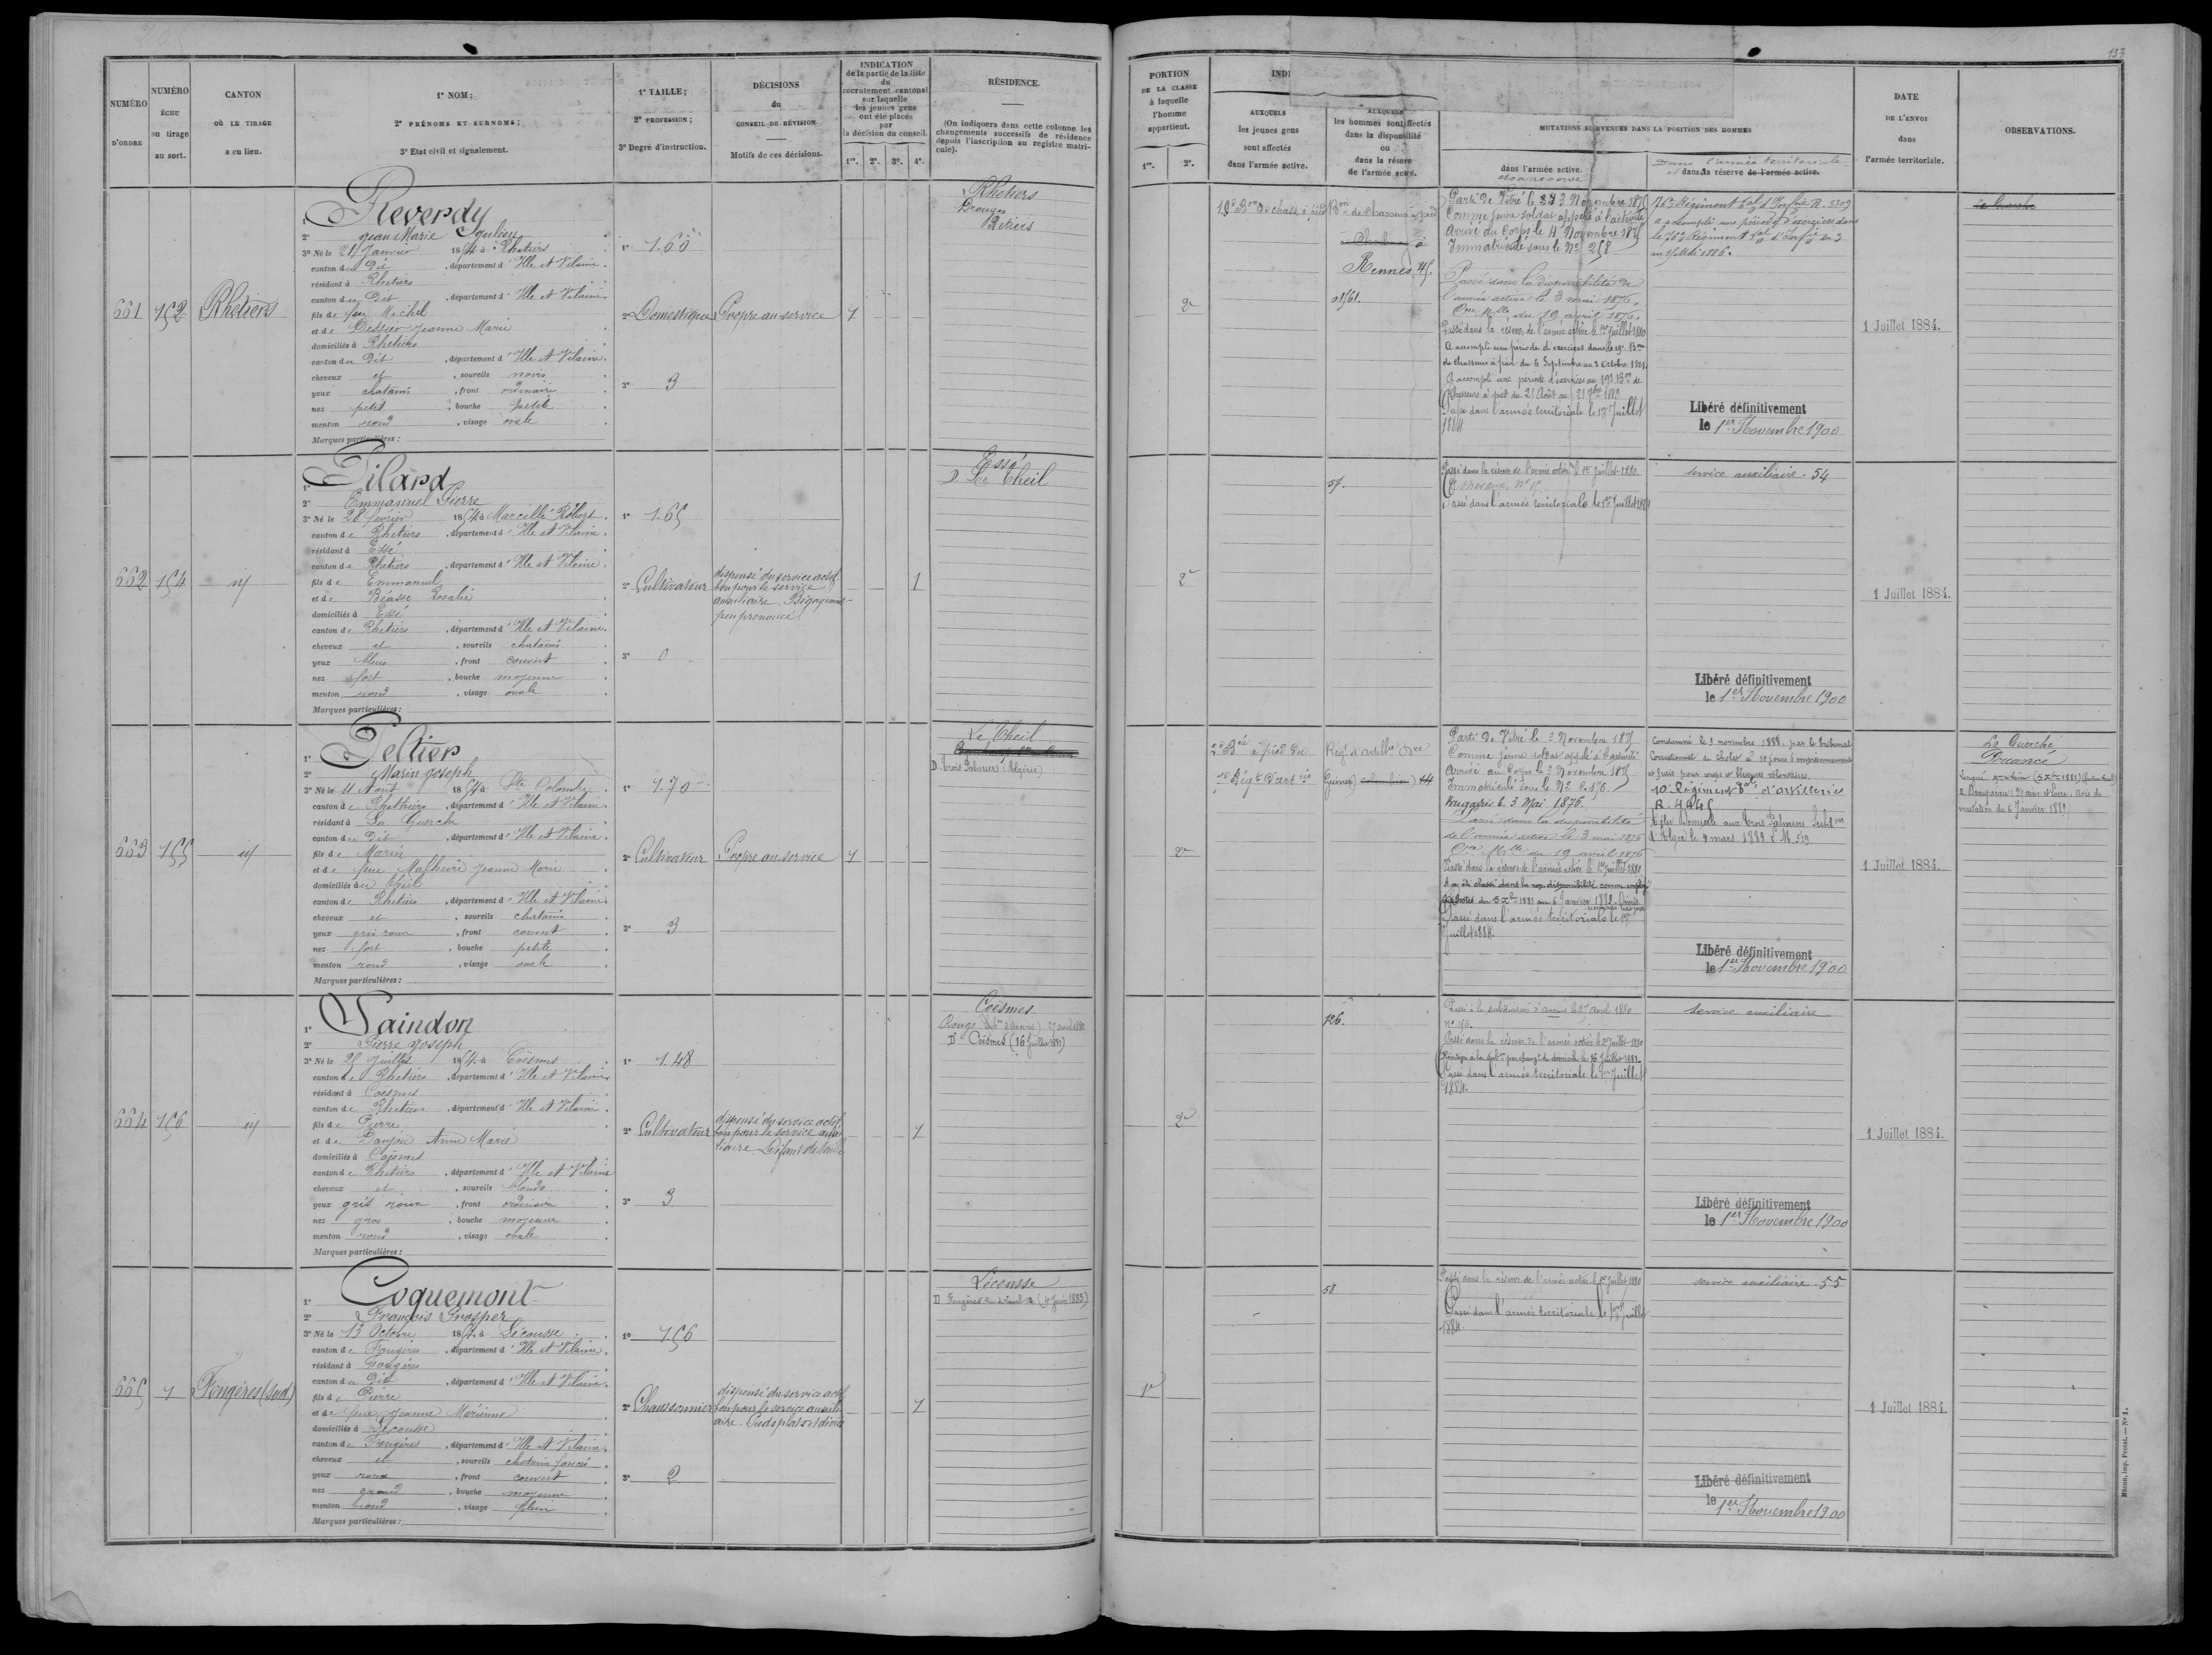 133
NUMÉRO
D'ORDRE
NUMÉRO
ÉCHU
au tirage
au sort.
CANTON
OÙ LE TIRAGE
a eu lieu.
1° NOM;
2° PRÉNOMS ET SURNOMS;
3° Etat civil et signalement.
1° TAILLE;
2° PROFESSION;
3° Degré d'instruction.
DÉCISIONS
du
CONSEIL DE RÉVISION
Motifs de ces décisions.
INDICATION
de la partie de la liste
du
recrutement cantonal
sur laquelle
les jeunes gens
ont été placés
par
la décision du conseil.
1re. 2e. 3e. 4e.
RÉSIDENCE.
(On indiquera dans cette colonne les
changements successifs de résidence
depuis l'inscription au registre matri-
cule).
PORTION
DE LA CLASSE
à laquelle
l'homme
appartient.
1re. 2e.
INDI
AUXQUELS
les jeunes gens
sont affectés
dans l'armée active.
AUXQUELS
les hommes sont affectés
dans la disponibilité
ou
dans la réserve
de l'armée active.
MUTATIONS SURVENUES DANS LA POSITION DES HOMMES
dans l'armée active.
et sa réserve
Dans l'armée territoriale
et dans sa réserve de l'armée active.
DATE
DE L'ENVOI
dans
l'armée territoriale.
OBSERVATIONS.
661
152
Rhetiers
Reverdy
2° Jean Marie Julien
3° Né le 21 Janvier 1854 à Rhetiers
canton du Dit, département d'Ille et Vilaine.
résidant à Rhetiers
canton du Dit, département d'Ille et Vilaine
fils de feu Michel
et de Dessier Jeanne Marie
domiciliés à Rhetiers
canton du Dit, département d'Ille et Vilaine.
cheveux et, sourcils noirs
yeux chatains, front ordinaire
nez petit, bouche petite
menton rond, visage ovale
Marques particulières:
1° 1.60
2° Domestique
3° 3
Propre au service
1
Rhetiers
Drouges
Retiers
2e
19e Bon de chass. à pied
Bon de Chasseurs à pied
Rennes 45.
Parti de Vitré le 3 Novembre 1875
Comme jeune soldat appelé à l'activité
Arrivé au Corps le 4 Novembre 1875
Immatriculé sous le No 258
Passé dans la disponibilité de
l'armée active le 3 mai 1876.
Cre Mlle du 19 avril 1876.
Passé dans la réserve de l'armée active le 1er Juillet 1880
A accompli une période d'exercices dans le 19e Bon
de chasseurs à pied du 6 Septembre au 3 Octobre 1881.
A accompli une période d'exercices au 19e Bon de
Chasseurs à pied du 21 Août au
Passé dans l'armée territoriale le 1er Juillet
1884
76e Régiment tal d'Infrie R. 2209
a accompli une période d'exercices dans
le 76e Régiment tal d'Infrie du 3
au 15 Mai 1886.
Libéré définitivement
le 1er Novembre 1900
1 Juillet 1884.
La Guerche
662
154
id
Pilard
2° Emmanuel Pierre
3° Né le 28 février 1854 à Marcillé Robert
canton de Rhetiers, département d'Ille et Vilaine.
résidant à Essé
canton de Rhetiers, département d'Ille et Vilaine.
fils de Emmanuel
et de Béasse Rosalie
domiciliés à Essé
canton de Rhetiers, département d'Ille et Vilaine.
cheveux et, sourcils chatains
yeux bleus, front couvert
nez fort, bouche moyenne
menton rond, visage ovale
Marques particulières:
1° 1.65
2° Cultivateur
3° 0
dispensé du service actif
bon pour le service
auxiliaire. Bégayement
peu prononcé
1
Essé
D. Le Theil
2e
57.
Passé dans la réserve de l'armée active le 1er juillet 1880
Passé dans l'armée territoriale le 1er Juillet 1884
service auxiliaire. 54
Libéré définitivement
le 1er Novembre 1900
1 Juillet 1884.
663
155
id
Peltier
2° Marin Joseph
3° Né le 11 Aout 1854 à Ste Colombe
canton de Rhethiers, département d'Ille et Vilaine.
résidant à La Guerche
canton du Dit, département d'Ille et Vilaine.
fils de Marin
et de feue Malheuré Jeanne Marie
domiciliés au Theil
canton de Rhetiers, département d'Ille et Vilaine.
cheveux et, sourcils chatains
yeux gris roux, front couvert
nez fort, bouche petite
menton rond, visage ovale
Marques particulières:
1° 1.70
2° Cultivateur
3° 3
Propre au service
1
Le Theil
D. Trois Palmiers (Algérie)
2e
2e Bie à pied du
Régt d'artillie
Parti de Vitré le 2 Novembre 1875
Comme jeune soldat appelé à l'activité
Arrivé au Corps le 3 Novembre 1875
Passé dans la disponibilité
de l'armée active le 3 mai 1876
Cre Mlle du 19 avril 1876
Passé dans la réserve de l'armée active le 1er Juillet 1880
A été classé dans la non disponibilité comme employé
Passé dans l'armée territoriale le 1er
Juillet 1884.
Condamné le 3 novembre 1888, par le tribunal
Correctionnel de Cholet à 10 jours d'emprisonnement
et frais pour coups et blessures volontaires.
10e Régiment tal d'artillerie
R. 4945
Libéré définitivement
le 1er Novembre 1900
1 Juillet 1884.
La Guerche
Pouancé
mutation du 6 Janvier 1882
664
156
id
Jaindon
2° Pierre Joseph
3° Né le 25 Juillet 1854 à Coësmes
canton de Rhetiers, département d'Ille et Vilaine
résidant à Coësmes
canton de Rhetiers, département d'Ille et Vilaine.
fils de Pierre
et de Danjou Anne Marie
domiciliés à Coësmes
canton de Rhetiers, département d'Ille et Vilaine
cheveux et, sourcils blonds
yeux gris roux, front ordinaire
nez gros, bouche moyenne
menton rond, visage ovale
Marques particulières:
1° 1.48
2° Cultivateur
3° 3
dispensé du service actif
bon pour le service auxi
liaire Défaut de taille
1
Coësmes
Rougé (Sub. d'Ancenis) 27 avril 1880
D. Coësmes (16 Juillet 1881)
2e
126.
Passé à la subdivision d'Ancenis le 27 avril 1880
no 116.
Passé dans la réserve de l'armée active le 1er Juillet 1880
Réintégré à la subon par changt de domicile le 16 Juillet 1881
Passé dans l'armée territoriale le 1er Juillet
1884.
service auxiliaire
Libéré définitivement
le 1er Novembre 1900
1 Juillet 1884.
665
1
Fougères (Sud)
Coquemont
2° François Prosper
3° Né le 13 Octobre 1854 à Lécousse
canton de Fougères, département d'Ille et Vilaine.
résidant à Fougères
canton du Dit, département d'Ille et Vilaine.
fils de Pierre
et de feue Jeanne Mérienne
domiciliés à Lécousse
canton de Fougères, département d'Ille et Vilaine.
cheveux et, sourcils chatains foncés
yeux roux, front couvert
nez grand, bouche moyenne
menton rond, visage plein
Marques particulières:
1° 1.56
2° Chaussonnier
3° 2
dispensé du service actif
bon pour le service auxili
aire. Pieds plats et déviés
1
Lécousse
1e
58
Passé dans la réserve de l'armée active le 1er Juillet 1880
Passé dans l'armée territoriale le 1er Juillet
1884.
service auxiliaire. 55
Libéré définitivement
le 1er Novembre 1900
1 Juillet 1884.
Mâcon, imp. Protat. — No 1.